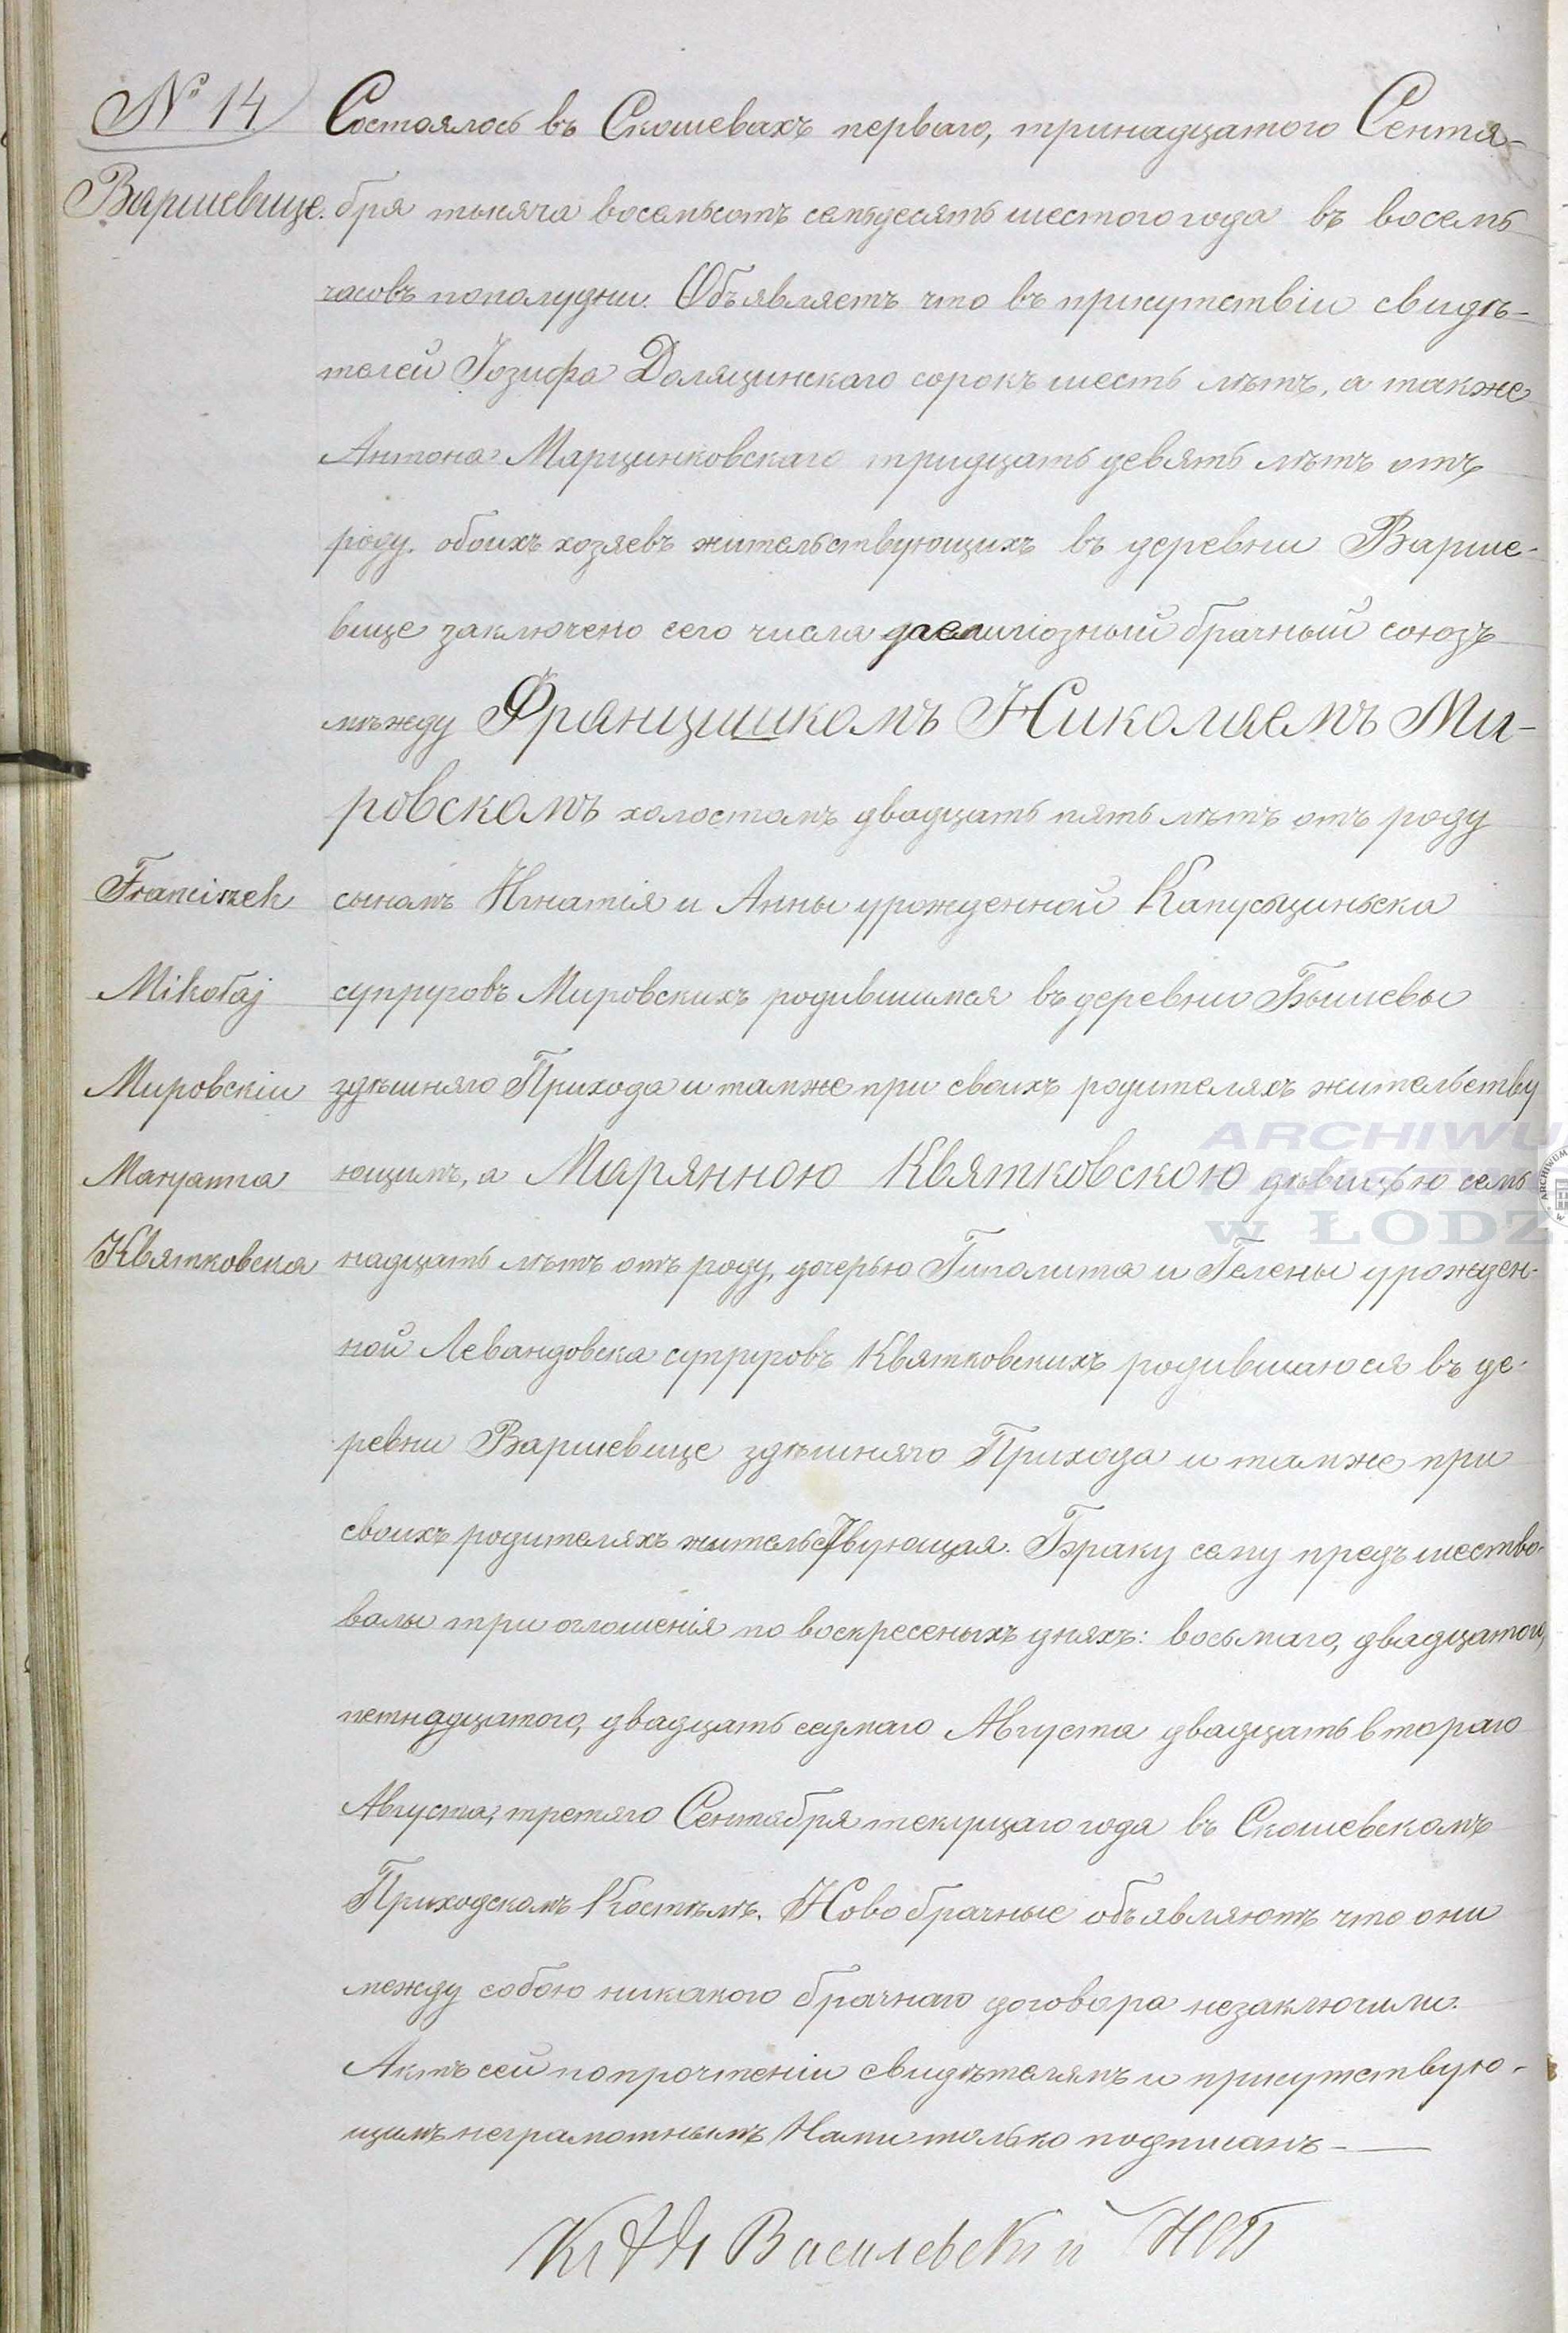 № 14
Состоялось въ Скошевахъ перваго, тринадцатого Сентя-
Варшевице. бря тысяча восемьсотъ семьдесятъ шестого года въ восемь
часовъ пополудни. Объявляетъ что въ присутствіи свидѣ-
телей Іозифа Доляцинскаго сорокъ шесть лѣтъ, а также
Антона Марцинковскаго тридцать девять лѣтъ отъ
роду, обоихъ хозяевъ жительствующихъ въ деревни Варше-
вице заключено сего числа религіозный брачный союзъ
мѣжду Францишкомъ Николаемъ Ми-
ровскомъ холостомъ двадцать пять лѣтъ отъ роду
Franciszek сыномъ Игнатія и Анны урожденной Капусциньска
Mikołaj супруговъ Мировскихъ родившимся въ деревни Бышевы
Мировскій здѣшняго Прихода и тамже при своихъ родителяхъ жительству
Maryanna ющимъ, а Марянною Квятковскою дѣвицью семь
Квятковска надцать лѣтъ отъ роду, дочерью Гиполита и Гелены урожден-
ной Левандовска супруговъ Квятковскихъ родившаюся въ де-
ревни Варшевице здѣшняго Прихода и тамже при
своихъ родителяхъ жительствующая. Браку сему предъшество-
валы три оглошенія по воскресеныхъ дняхъ: восьмаго, двадцатого,
петнадцатого, двадцать седмаго Августа двадцать втораго
Августа, третяго Сентября текущаго года въ Скошевскомъ
Приходскомъ Костѣлѣ. Новобрачные объявляютъ что они
между собою никакого брачнаго договора незаключили.
Актъ сей попрочтеніи свидѣтелямъ и присутствую-
щимъ неграмотнымъ Нами только подписанъ
Василевскій
ARCHIWU
w ŁODZ